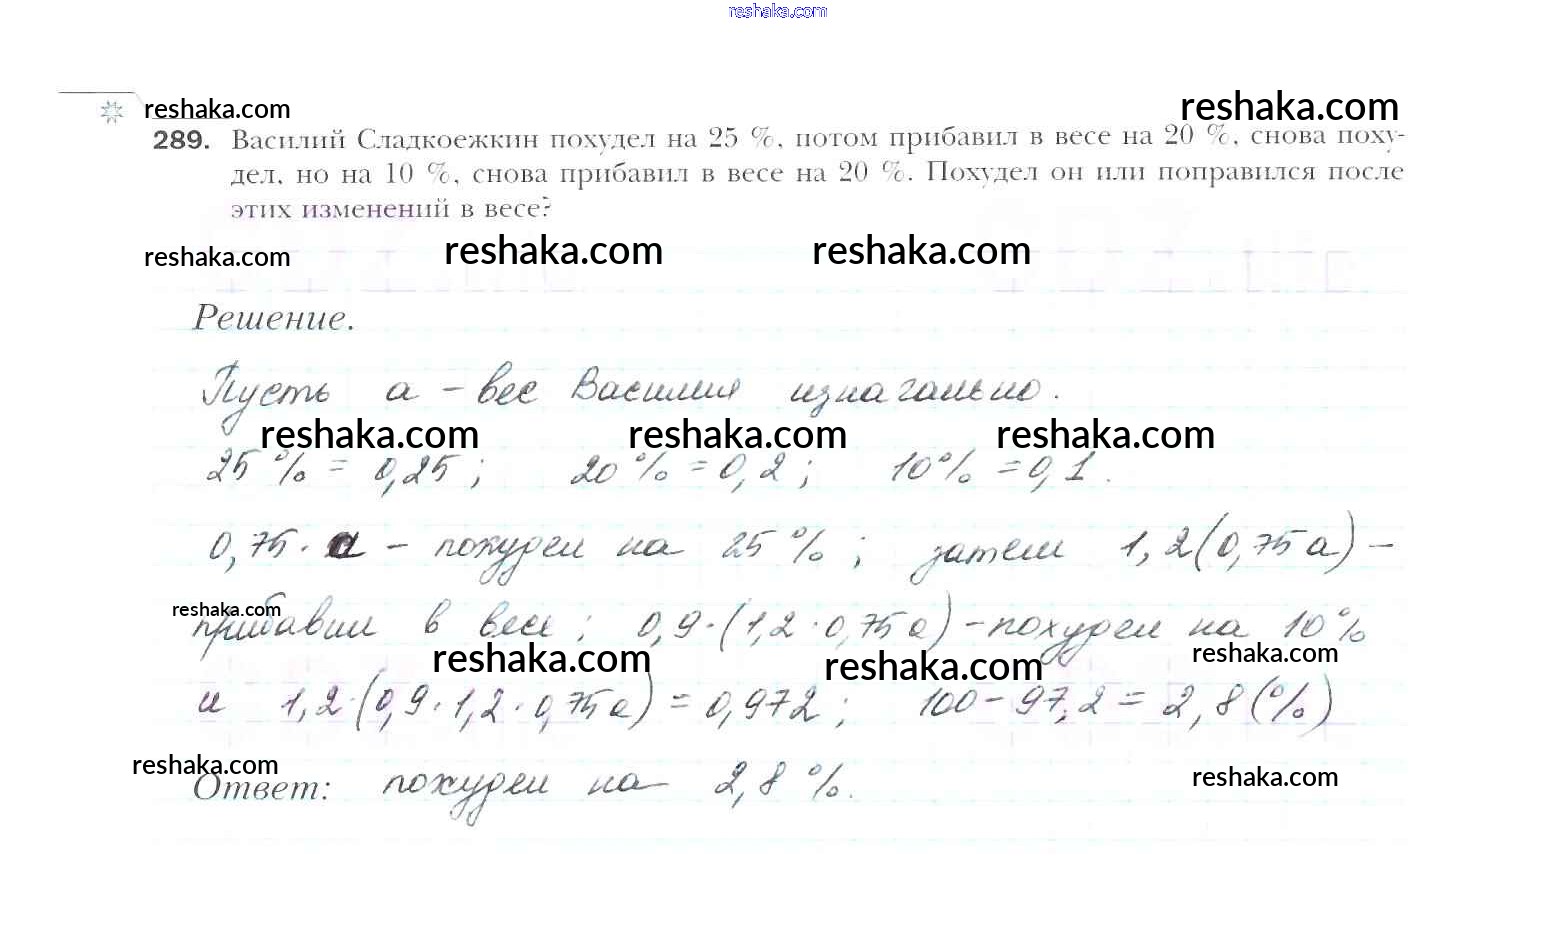 reshaka.com
reshaka.com reshaka.com
289. Василий Сладкоежкин похудел на 25 %, потом прибавил в весе на 20 %, снова поху-
дел, но на 10 %, снова прибавил в весе на 20 %. Похудел он или поправился после
этих изменений в весе?
reshaka.com reshaka.com reshaka.com
Решение.
Пусть а – вес Василия изначально.
reshaka.com reshaka.com reshaka.com
25 % = 0,25 ; 20 % = 0,2 ; 10 % = 0,1.
0,75 · а – похудел на 25 % ; затем 1,2(0,75 а) –
reshaka.com
прибавил в весе ; 0,9·(1,2 · 0,75 а) – похудел на 10 %
reshaka.com reshaka.com reshaka.com
и 1,2·(0,9·1,2·0,75 а) = 0,972 ; 100 – 97,2 = 2,8 (%)
reshaka.com reshaka.com
Ответ: похудел на 2,8 %.